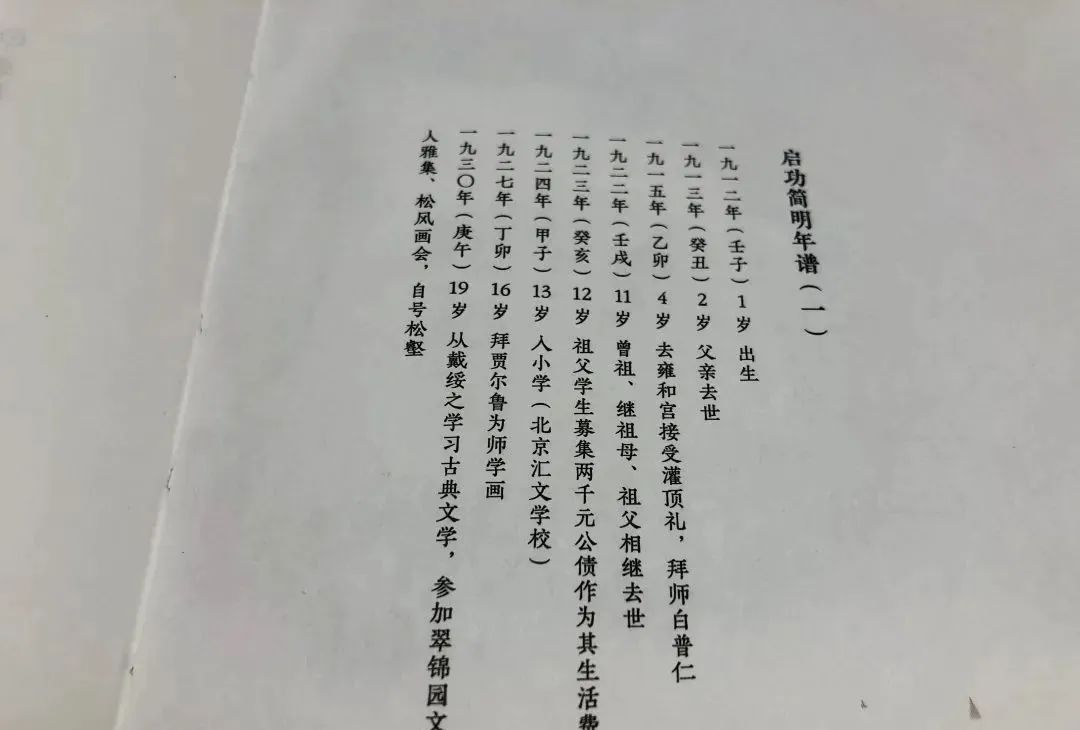 启功简明年谱(一)
一九一二年(壬子) 1岁 出生
一九一三年(癸丑) 2岁 父亲去世
一九一五年(乙卯) 4岁 去雍和宫接受灌顶礼，拜师白普仁
一九二二年(壬戌) 11岁 曾祖、继祖母、祖父相继去世
一九二三年(癸亥) 12岁 祖父学生募集两千元公债作为其生活费
一九二四年(甲子) 13岁 入小学(北京汇文学校)
一九二七年(丁卯) 16岁 拜贾尔鲁为师学画
一九三〇年(庚午) 19岁 从戴绥之学习古典文学，参加翠锦园文
人雅集、松风画会，自号松壑